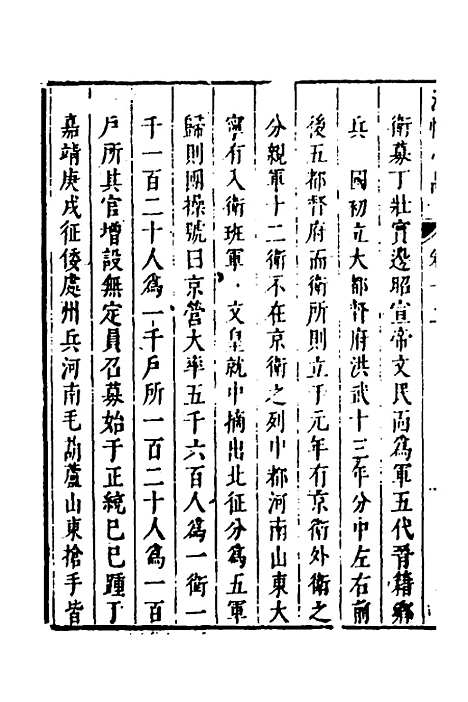 衛募丁壯實邊昭宣帝文民面為軍五代晉籍鄉
兵　國初立大都督府洪武十三年分中左右前
後五都督府而衛所則立于元年有京衛外衛之
分親軍十二衛不在京衛之列中都河南山東大
寧有入衛班軍文皇就中摘出北征分為五軍
歸則團操號曰京營大率五千六百人為一衛一
千一百二十人為一千戶所一百二十人為一百
戶所其官增設無定員召募始于正統己巳踵于
嘉靖庚戌征倭處州兵河南毛葫蘆山東搶手皆